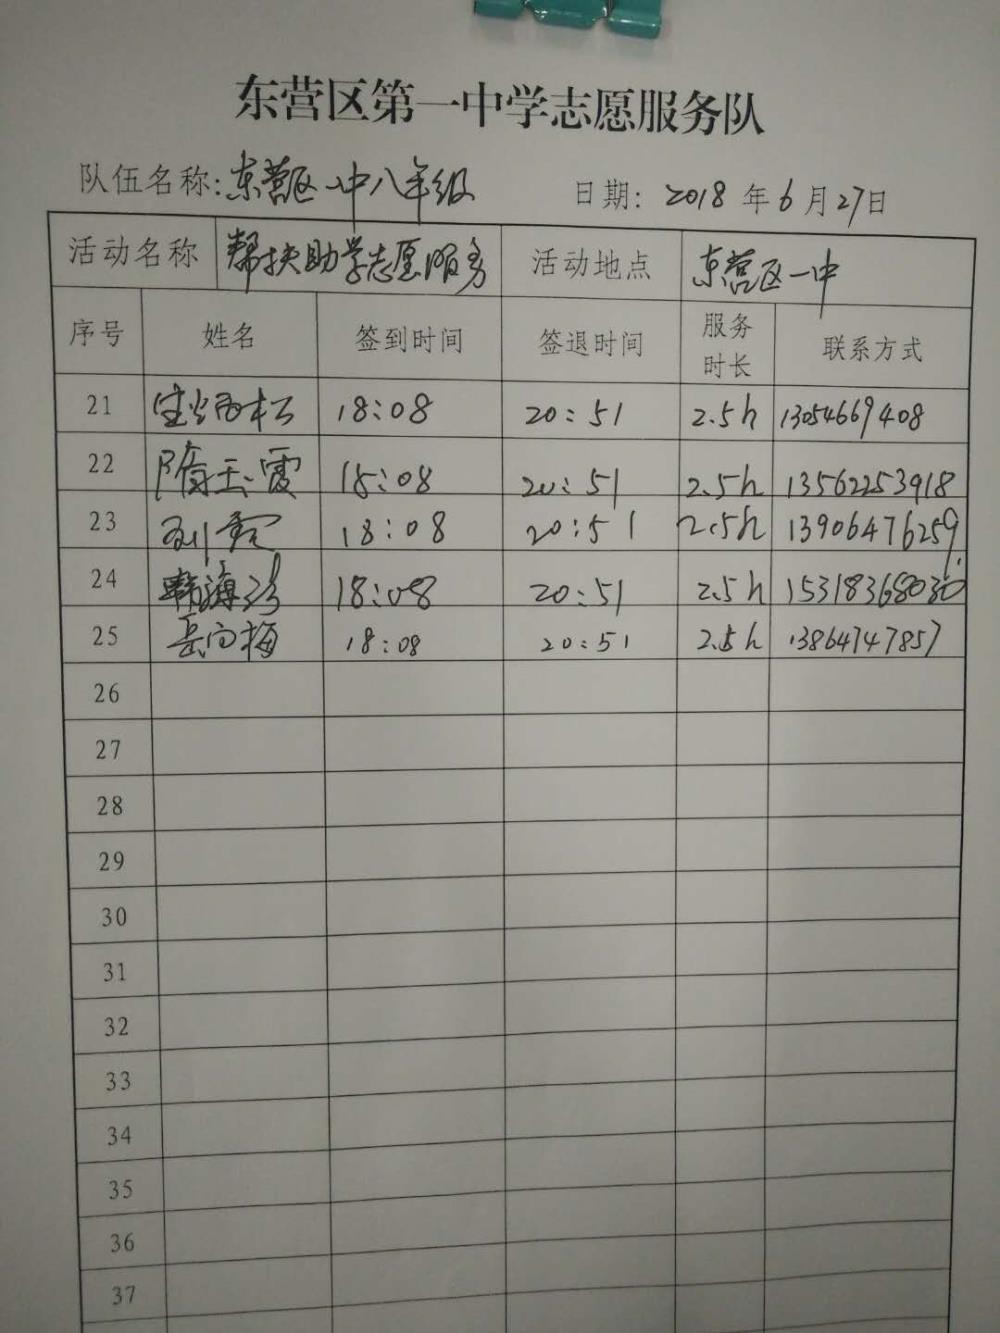 东营区第一中学志愿服务队
队伍名称:东营区一中八年级 日期: 2018 年 6 月 27 日
活动名称 帮扶助学志愿服务 活动地点 东营区一中
序号 姓名 签到时间 签退时间 服务时长 联系方式
21 18:08 20:51 2.5h 13054669408
22 隋玉霞 18:08 20:51 2.5h 13562253918
23 18:08 20:51 2.5h 13906476259
24 18:08 20:51 2.5h 15318368030
25 岳向梅 18:08 20:51 2.5h 13864747857
26
27
28
29
30
31
32
33
34
35
36
37